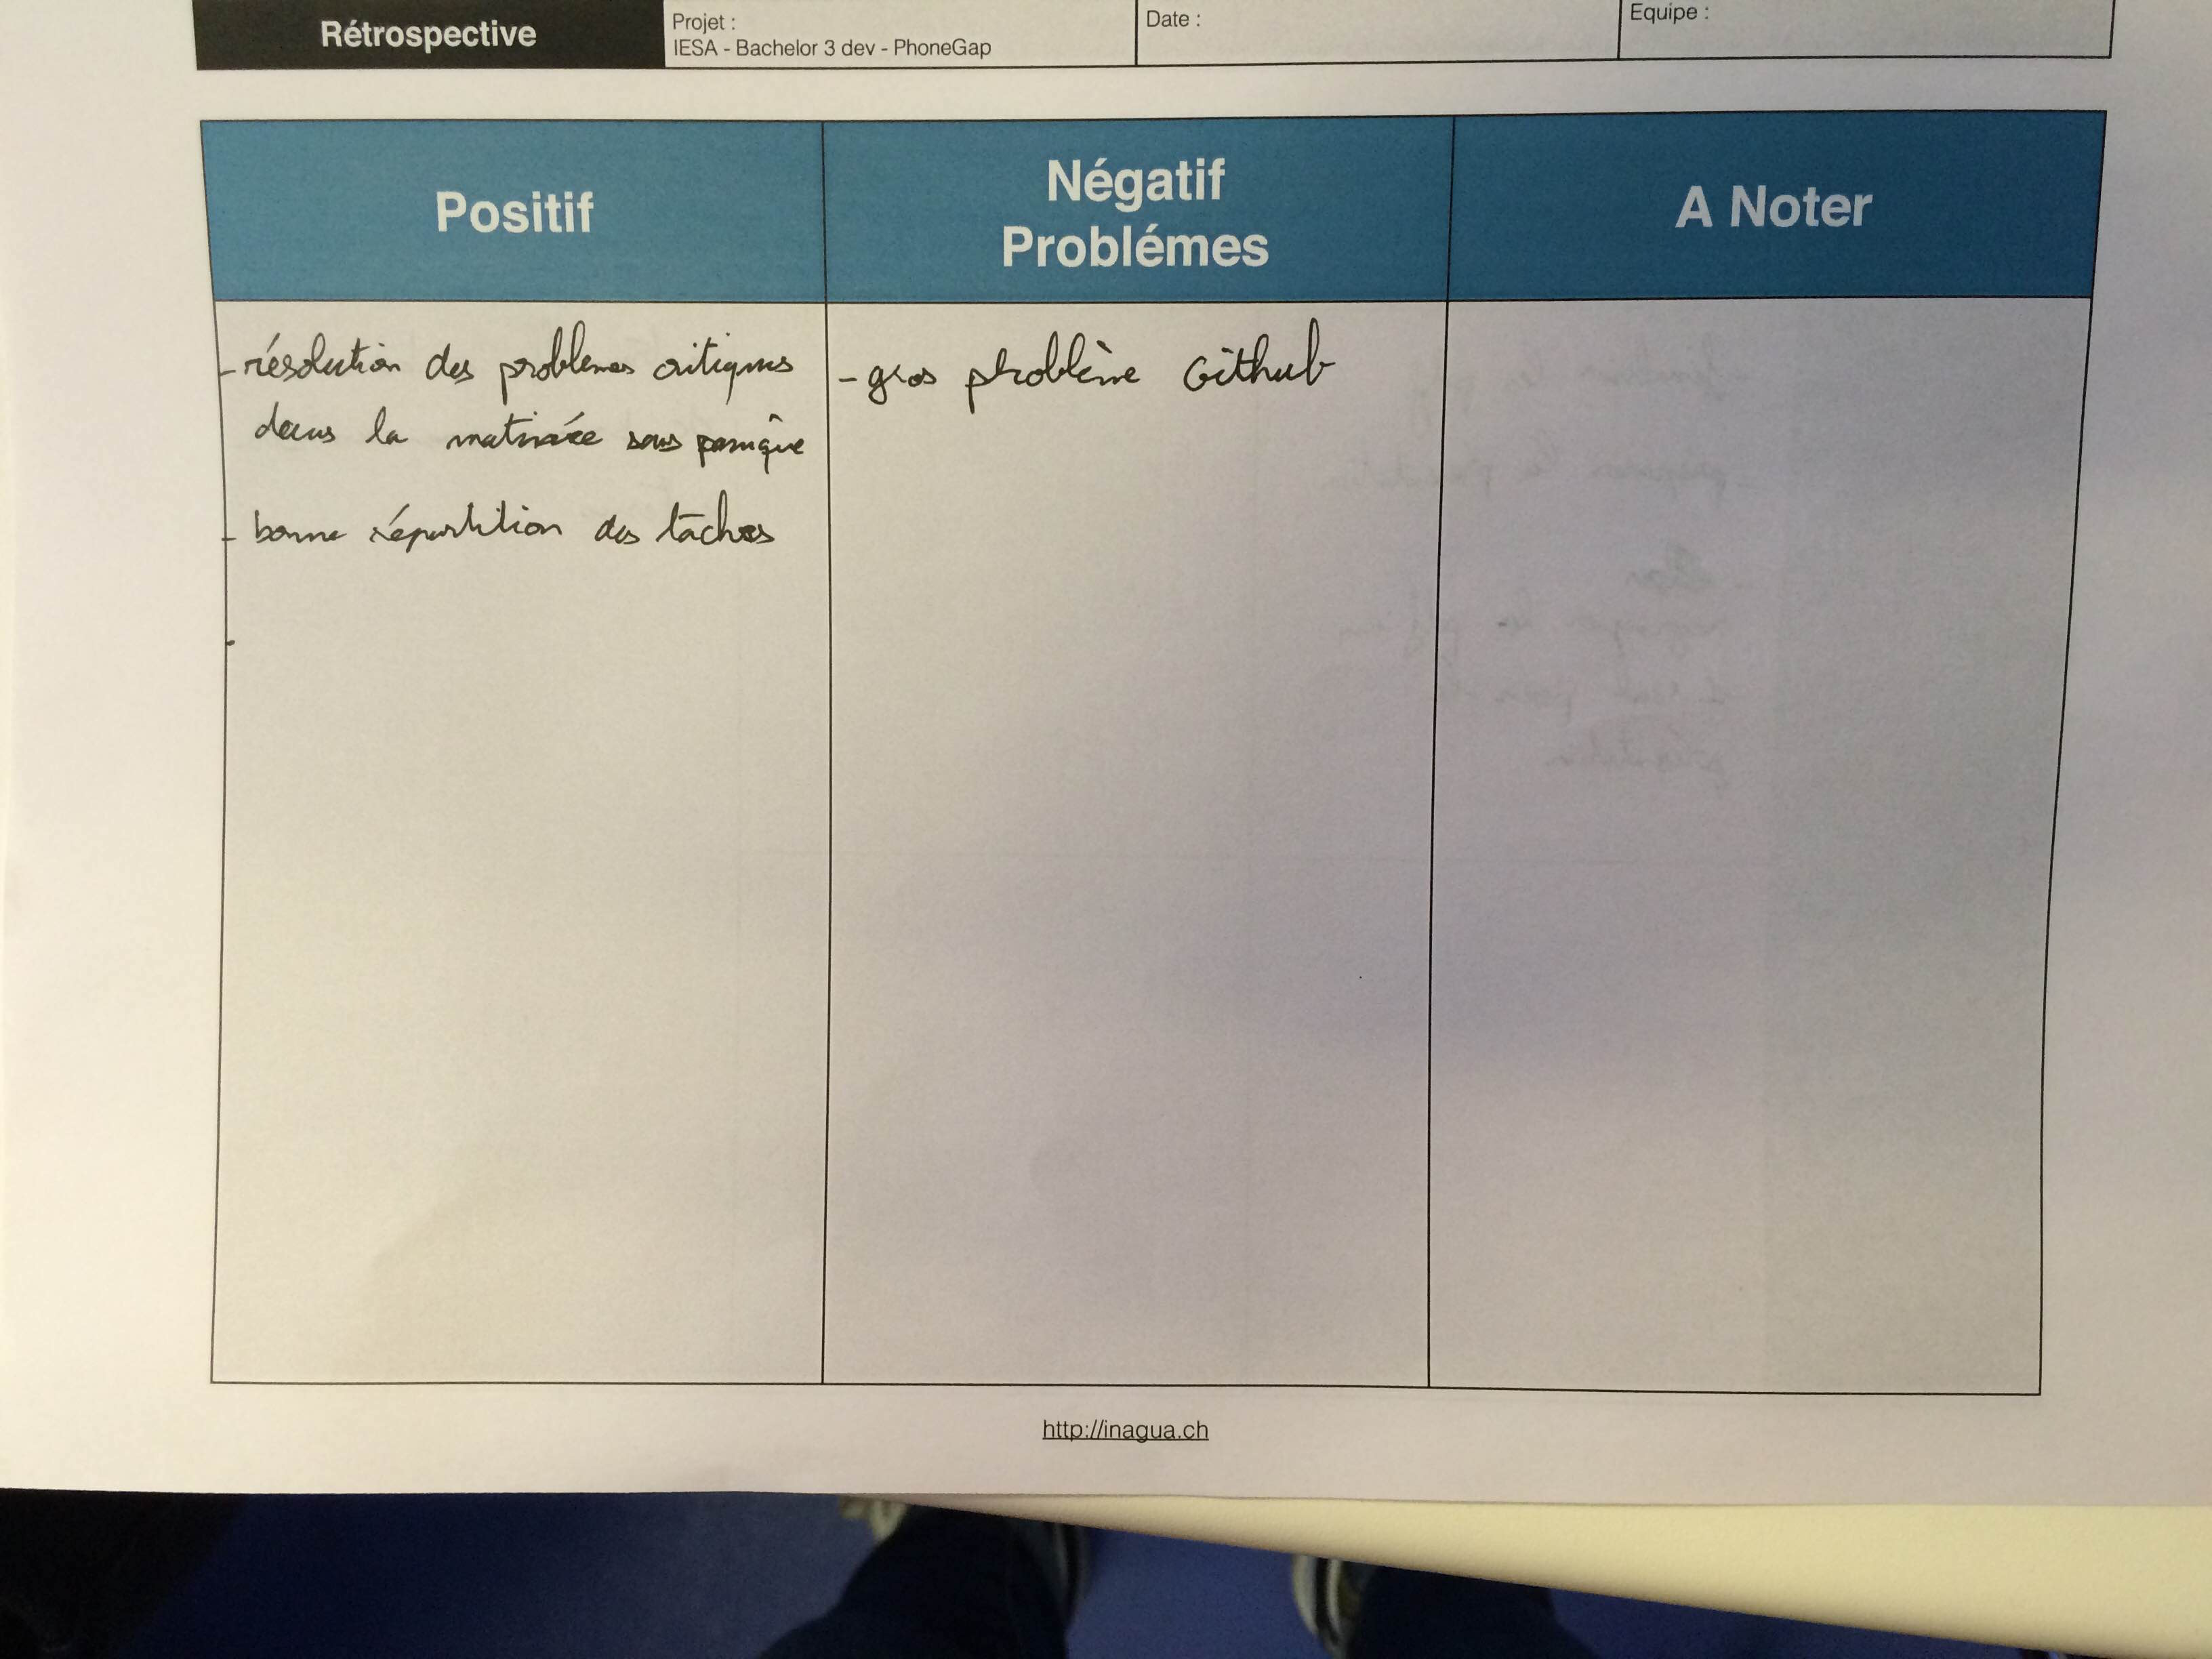 Rétrospective
Projet :
IESA - Bachelor 3 dev - PhoneGap
Date :
Equipe :
Positif
Négatif
Problémes
A Noter
- résolution des problemes critiques
dans la matinée sans panique
- bonne répartition des tâches
-
- gros problème Github
http://inagua.ch